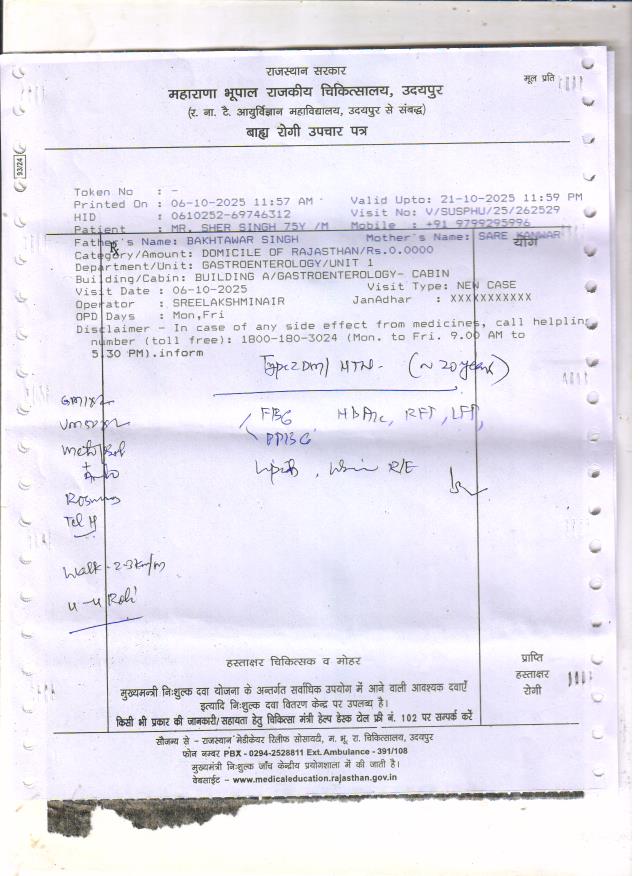 राजस्थान सरकार
मूल प्रति
महाराणा भूपाल राजकीय चिकित्सालय, उदयपुर
(र. ना. टै. आयुर्विज्ञान महाविद्यालय, उदयपुर से संबद्ध)
बाह्य रोगी उपचार पत्र
93/24
Token No : -
Printed On : 06-10-2025 11:57 AM Valid Upto: 21-10-2025 11:59 PM
HID : 0610252-69746312 Visit No: V/SUSPHU/25/262529
Patient : MR. SHER SINGH 75Y /M Mobile : +91 9799295996
Father's Name: BAKHTAWAR SINGH Mother's Name: SARE KANWAR
योग
Category/Amount: DOMICILE OF RAJASTHAN/Rs.0.0000
Department/Unit: GASTROENTEROLOGY/UNIT 1
Building/Cabin: BUILDING A/GASTROENTEROLOGY- CABIN
Visit Date : 06-10-2025 Visit Type: NEW CASE
Operator : SREELAKSHMINAIR JanAdhar : XXXXXXXXXXX
OPD Days : Mon,Fri
Disclaimer - In case of any side effect from medicines, call helpline
number (toll free): 1800-180-3024 (Mon. to Fri. 9.00 AM to
5.30 PM).inform
Type 2 DM / HTN - (~ 20 years)
FBG HbA1c, RFT, LFT,
PPBG
Lipid, Urine R/E
Tel H
Walk - 2-3 km/m
4 - 4 Roti
हस्ताक्षर चिकित्सक व मोहर
प्राप्ति
हस्ताक्षर
रोगी
मुख्यमन्त्री निःशुल्क दवा योजना के अन्तर्गत सर्वाधिक उपयोग में आने वाली आवश्यक दवाएँ
इत्यादि निःशुल्क दवा वितरण केन्द्र पर उपलब्ध है।
किसी भी प्रकार की जानकारी/सहायता हेतु चिकित्सा मंत्री हेल्प डेस्क टोल फ्री नं. 102 पर सम्पर्क करें
सौजन्य से - राजस्थान मेडीकेयर रिलीफ सोसायटी, म. भू. रा. चिकित्सालय, उदयपुर
फोन नम्बर PBX - 0294-2528811 Ext. Ambulance - 391/108
मुख्यमन्त्री निःशुल्क जाँच केन्द्रीय प्रयोगशाला में की जाती है।
वेबसाईट - www.medicaleducation.rajasthan.gov.in